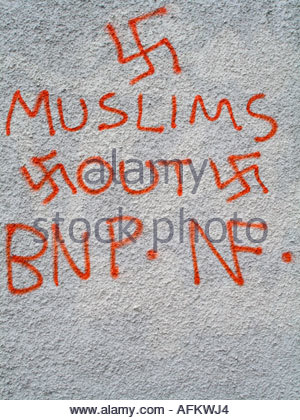 MUSLIMS
OUT
alamy
stock photo
BNP. NF.
alamy stock photo
AFKWJ4